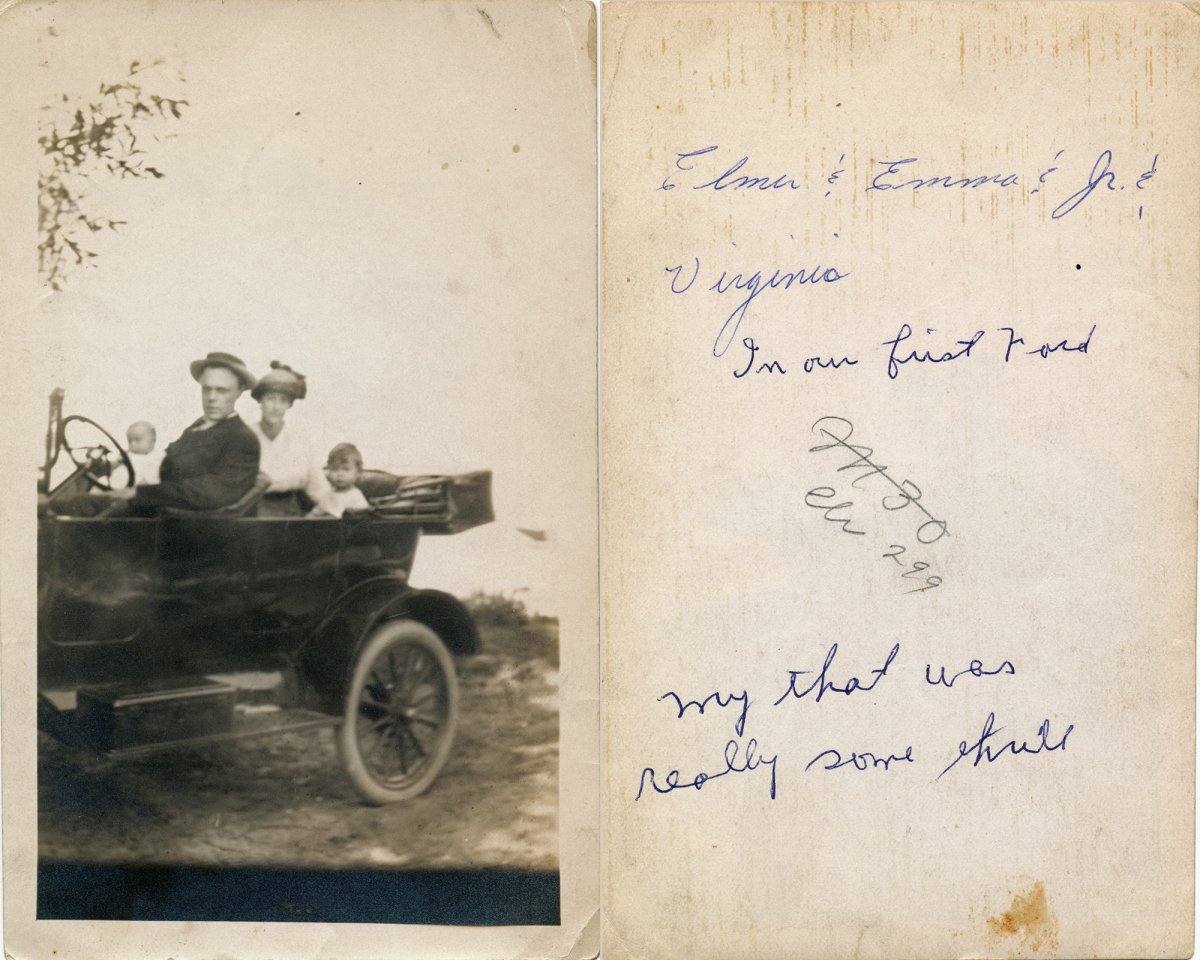 Elmer & Emma & Jr. &
Virginia
In our first Ford
299
my that was
really some thrill